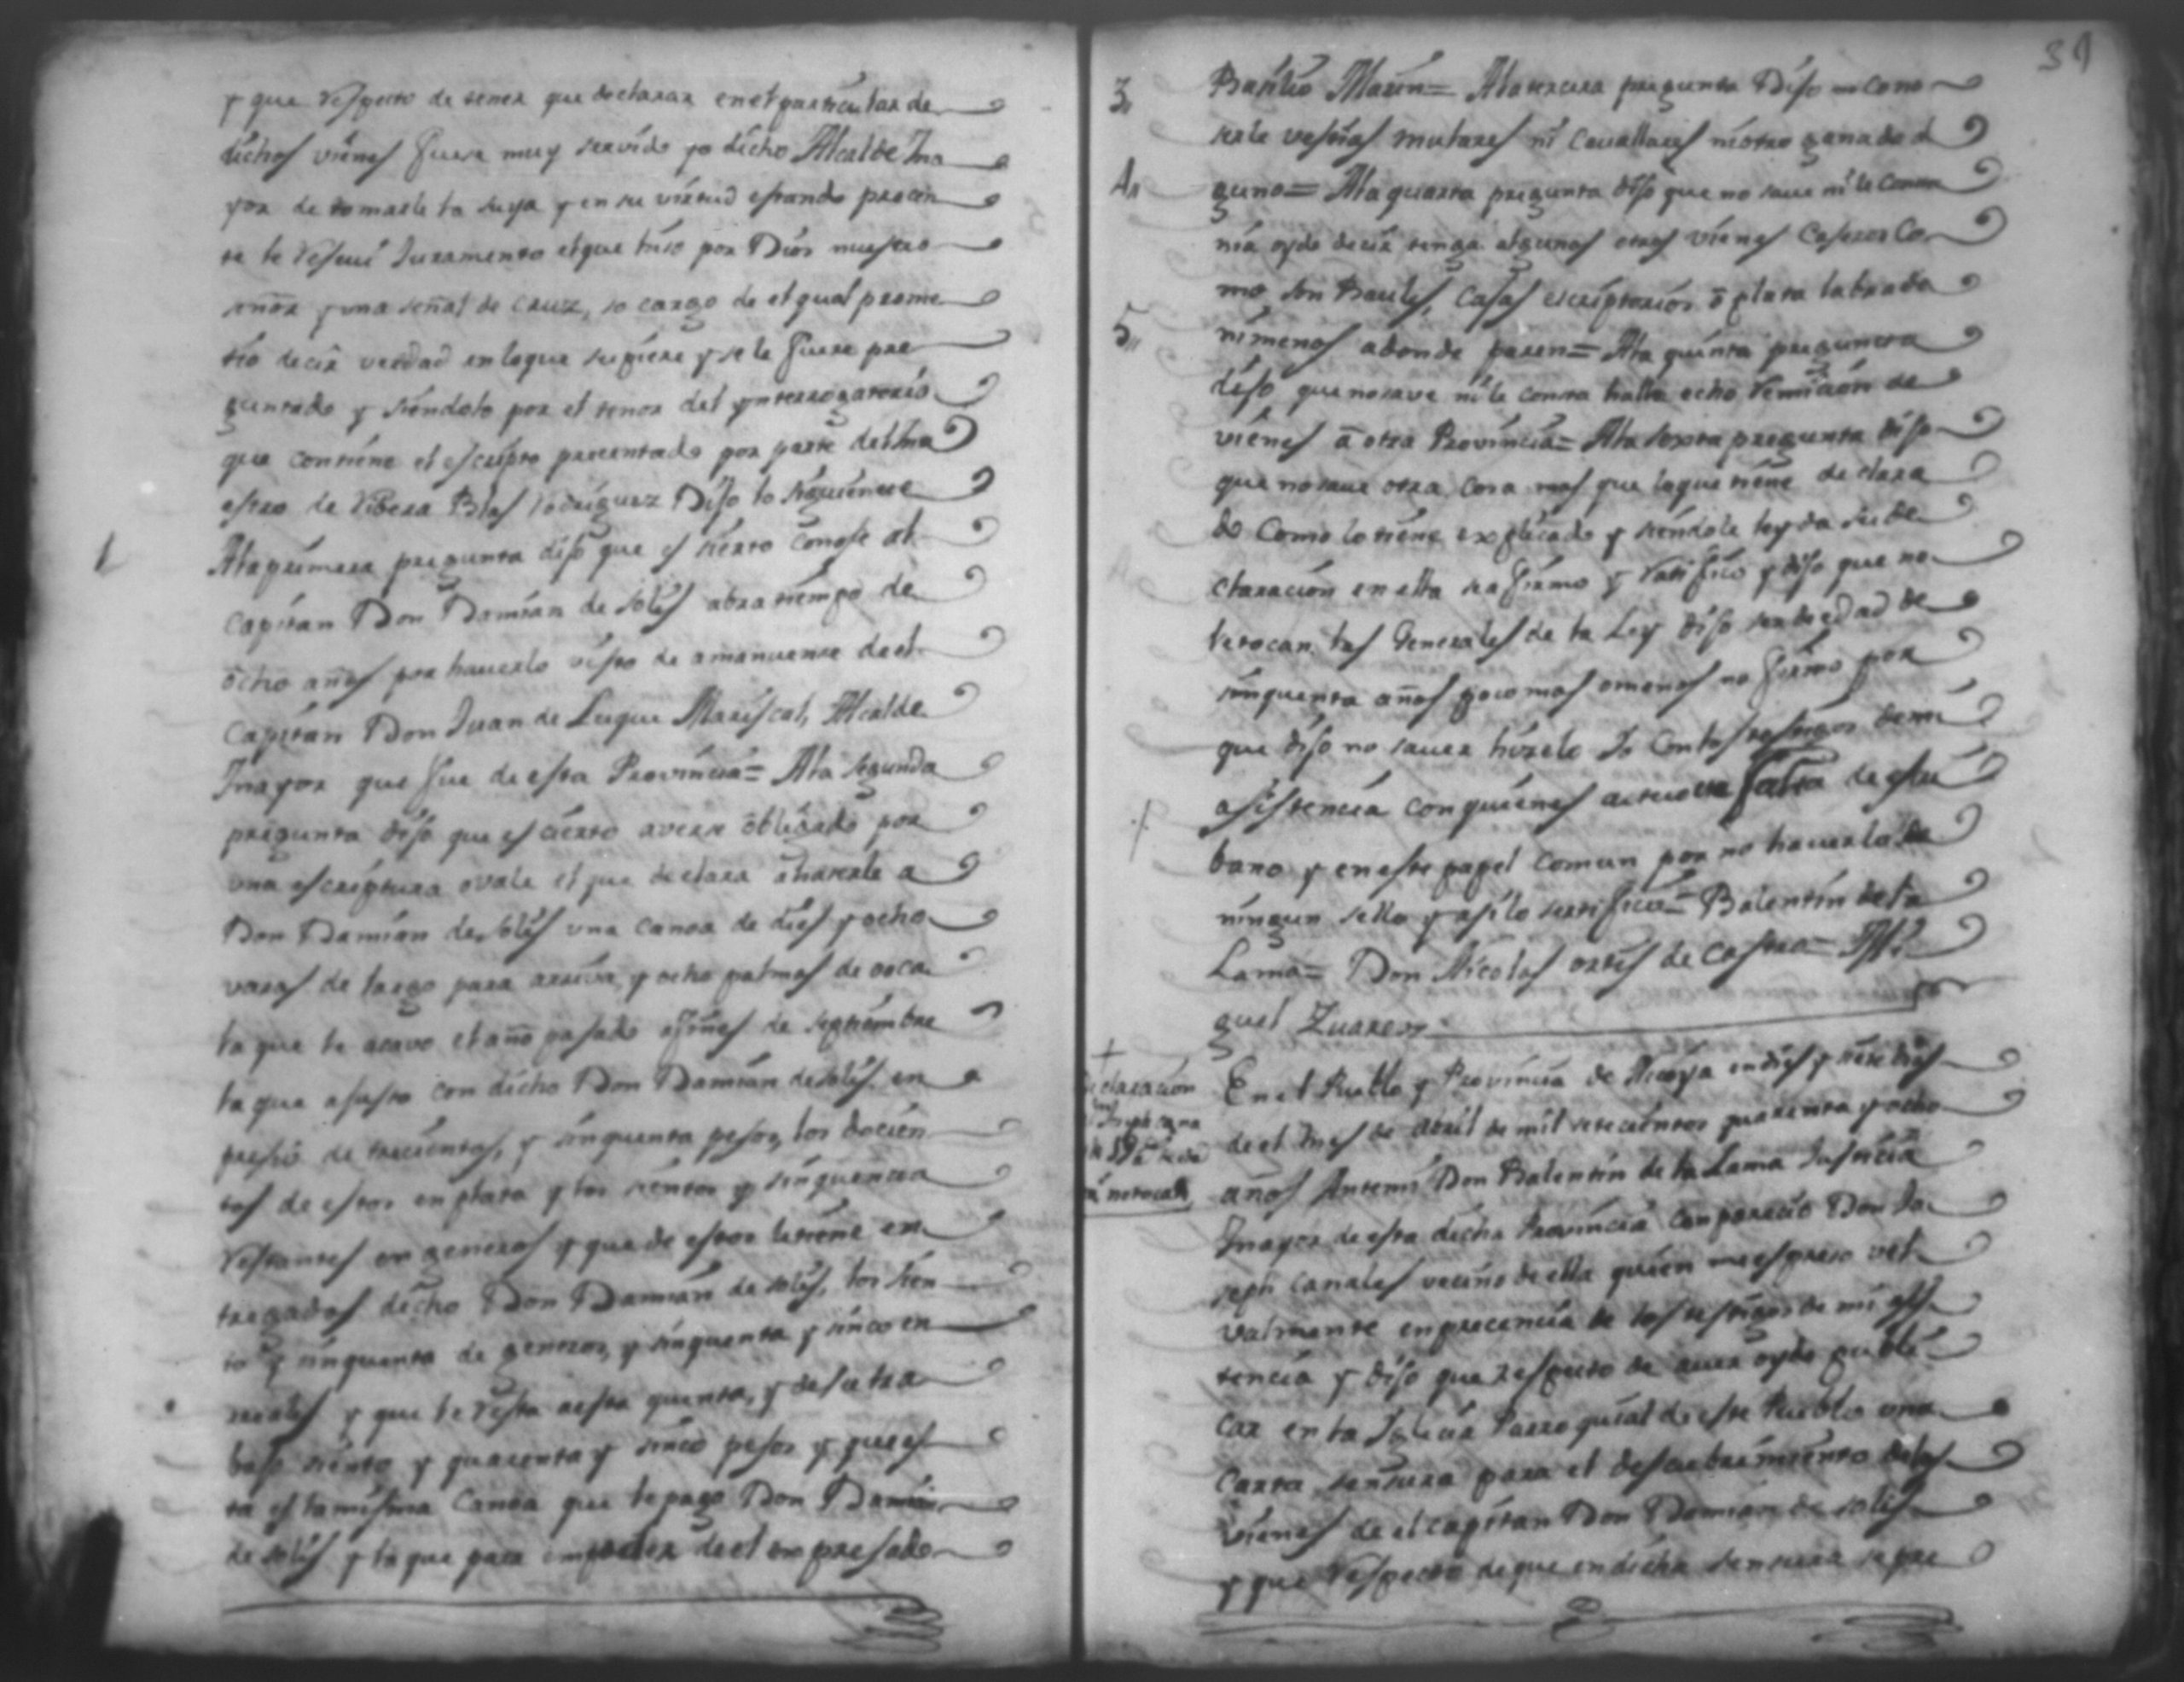 y que Respecto de tener que declarar en el particular de
dichos vienes fuese muy servido yo dicho Alcalde Ma
yor de tomarle la suya y en su virtud estando presen
te le Resevi Juramento el que hiso por Dios nuestro
señor y una señal de cruz, so cargo de el qual prome
tio decir verdad en loque supiere y se le fuere pre
guntado y siendolo por el tenor del ynterrogatorio
que contiene el escripto presentado por parte del Ma
estro de Rivera Blas Rodriguez Dijo lo siguiente
1 Ala primera pregunta dijo que es sierto conose al
Capitan Don Damian de Solis abra tiempo de
ocho años por haverlo visto de amanuense de el
Capitan Don Juan de Luque Mariscal, Alcalde
Mayor que fue de esta Provincia= Ala segunda
pregunta dijo que es cierto averse obligado por
una escriptura o vale el que declara a haserle a
Don Damian de Solis una canoa de dies y ocho
varas de largo para arriva, y ocho palmos de boca
la que le acavo el año pasado a fines de septiembre
la que ajusto con dicho Don Damian de Solis en
presio de trecientos, y sinquenta pesos, los docien
tos de estos en plata y los sientos y sinquenta
Restantes en generos y que de estos le tiene en
tregados dicho Don Damian de Solis, los sien
to y sinquenta de generos, y sinquenta y sinco en
reales y que le Resta de esta quenta, y de su tra
bajo siento y quarenta y sinco pesos y que es
ta es la misma canoa que le pago Don Damian
de Solis y la que para en poder de el expresado
31
3 Basilio Marin= Ala tercera pregunta Dijo no cono
serle vestias mulares ni cavallares ni otro ganado al
4 guno= Ala quarta pregunta dijo que no save ni le consta
nia oydo decir tenga algunos otros vienes caseros Co
mo son Baules, Cajas escriptorios o plata labrada
5 ni menos adonde paren= Ala quinta pregunta
dijo que no save ni le consta halla echo Remision de
vienes a otra Provincia= Ala sexta pregunta dijo
que no save otra cosa mas que loque tiene declara
do como lo tiene explicado y siendole leyda su de
claracion en ella se afirmo y Ratifico y dijo que no
le tocan las Generales de la Ley dijo ser de edad de
sinquenta años poco mas o menos no firmo por
que dijo no saver hizelo Yo con los testigos de mi
asistencia con quienes actuo en falta de escri
bano y en este papel comun por no haverlo de
ningun sello y asi lo sertifico= Balentin de la
Lama= Don Nicolas ortis de Castro= Mi
guel Zuares
Declaracion
Joseph cana
no tocale
En el Pueblo y Provincia de Nicoya en dies y siete dias
de el mes de abril de mil setecientos quarenta y ocho
años Antemi Don Balentin de la Lama Justicia
Mayor de esta dicha Provincia comparecio Don Jo
seph canales vecino de ella quien me espreso vel
valmente en precencia de los testigos de mi asis
tencia y dijo que Respecto de aver oydo publi
car en la Iglecia Parroquial de este Pueblo una
Carta sensura para el descubrimiento delos
vienes de el capitan Don Damian de Solis
y que Respecto de que en dicha sensura se pre